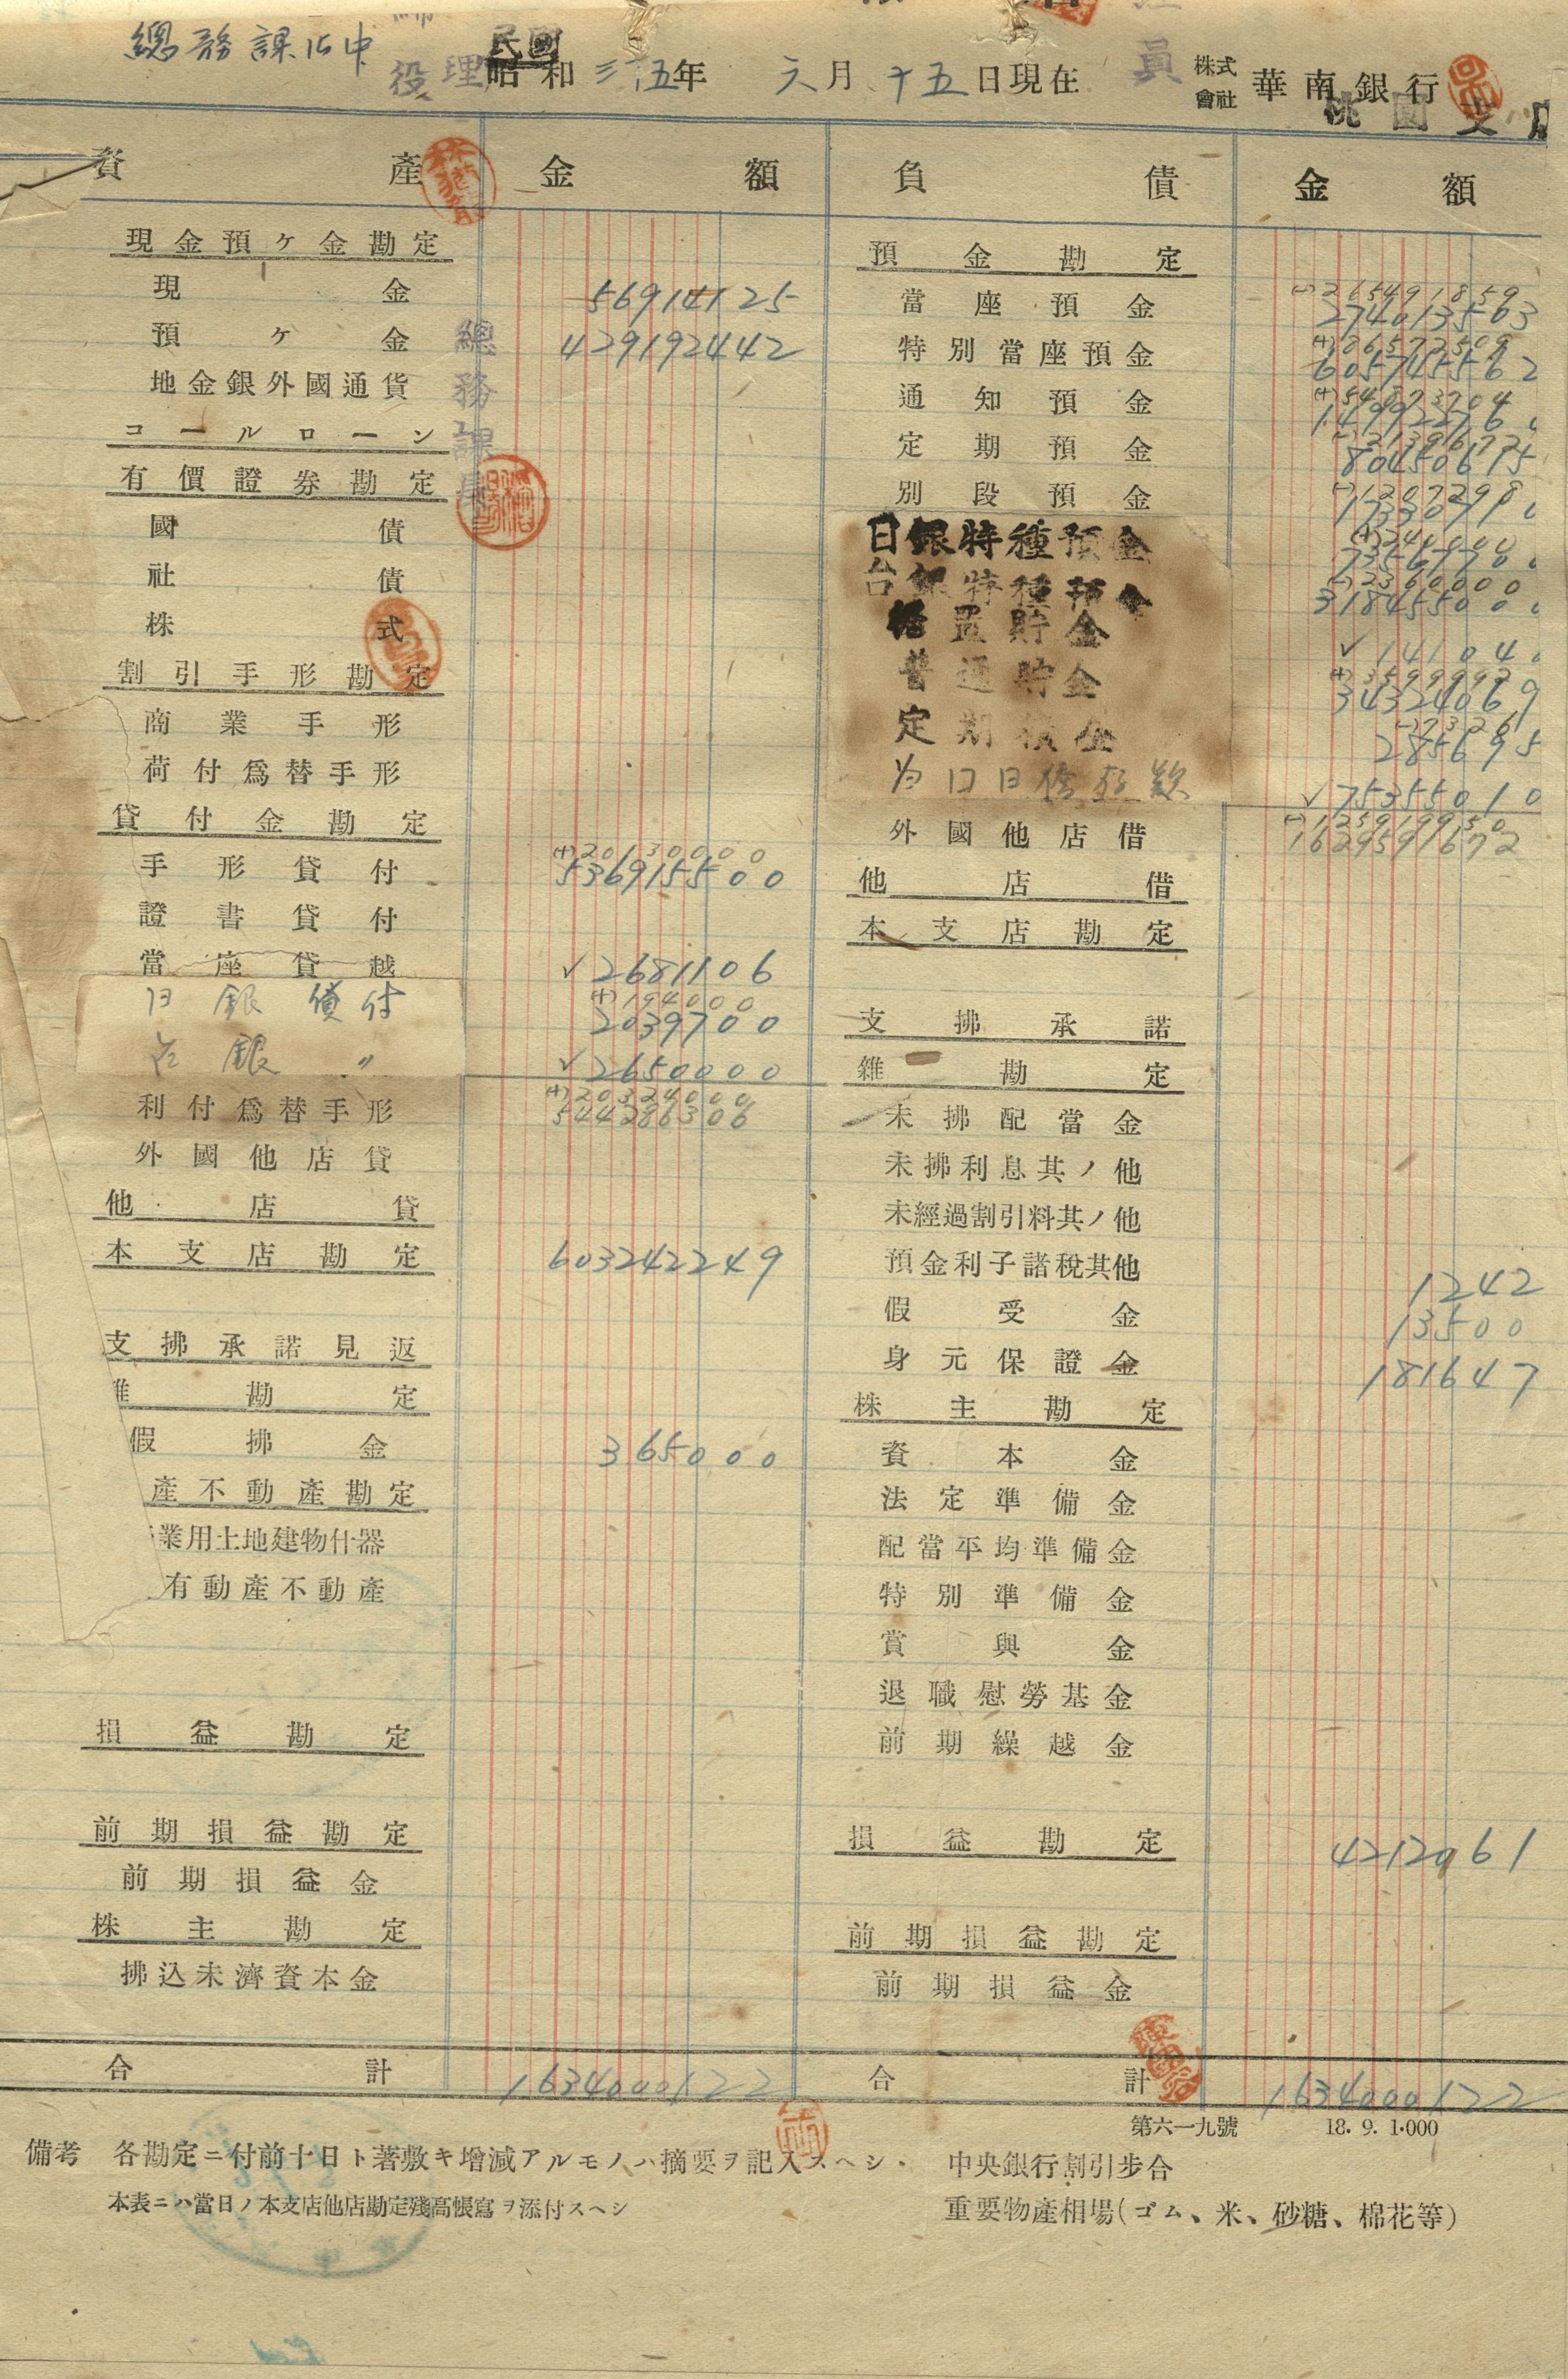 總務課御中
民國
昭和三五年 六月 十五日現在
株式會社 華南銀行
桃園支店
資產 金額 負債 金額
現金預ケ金勘定
現金 56914125
預ケ金 429192442
地金銀外國通貨
コールローン
有價證券勘定
國債
社債
株式
割引手形勘定
商業手形
荷付爲替手形
貸付金勘定
手形貸付 (+)201300000
536915500
證書貸付
當座貸越 ✓2681106
日銀貸付 (+)194000
2039700
台銀〃 ✓2650000
(+)20324000
544286306
利付爲替手形
外國他店貸
他店貸
本支店勘定 603242249
支拂承諾見返
雜勘定
假拂金 365000
產不動產勘定
業用土地建物什器
有動產不動產
損益勘定
前期損益勘定
前期損益金
株主勘定
拂込未濟資本金
合計 1634000122
總務課長
預金勘定
當座預金 (-)265491859
274013563
特別當座預金
605745562
通知預金
定期預金
80450615
別段預金
日銀特種預金
台銀特種預金 (-)2360000
318455000
据置貯金 ✓141040
普通貯金 (+)3599992
34324069
定期積金 (-)73261
285695
✓75355010
外國他店借 (-)125919950
1629591672
他店借
本支店勘定
支拂承諾
雜勘定
未拂配當金
未拂利息其ノ他
未經過割引料其ノ他
預金利子諸稅其他 1242
假受金 13500
身元保證金 181647
株主勘定
資本金
法定準備金
配當平均準備金
特別準備金
賞與金
退職慰勞基金
前期繰越金
損益勘定 4212061
前期損益勘定
前期損益金
合計 1634000122
第六一九號 18.9.1.000
備考 各勘定ニ付前十日ト著敷キ增減アルモノハ摘要ヲ記入スヘシ.
本表ニハ當日ノ本支店他店勘定殘高帳寫ヲ添付スヘシ
中央銀行割引步合
重要物產相場(ゴム、米、砂糖、棉花等)